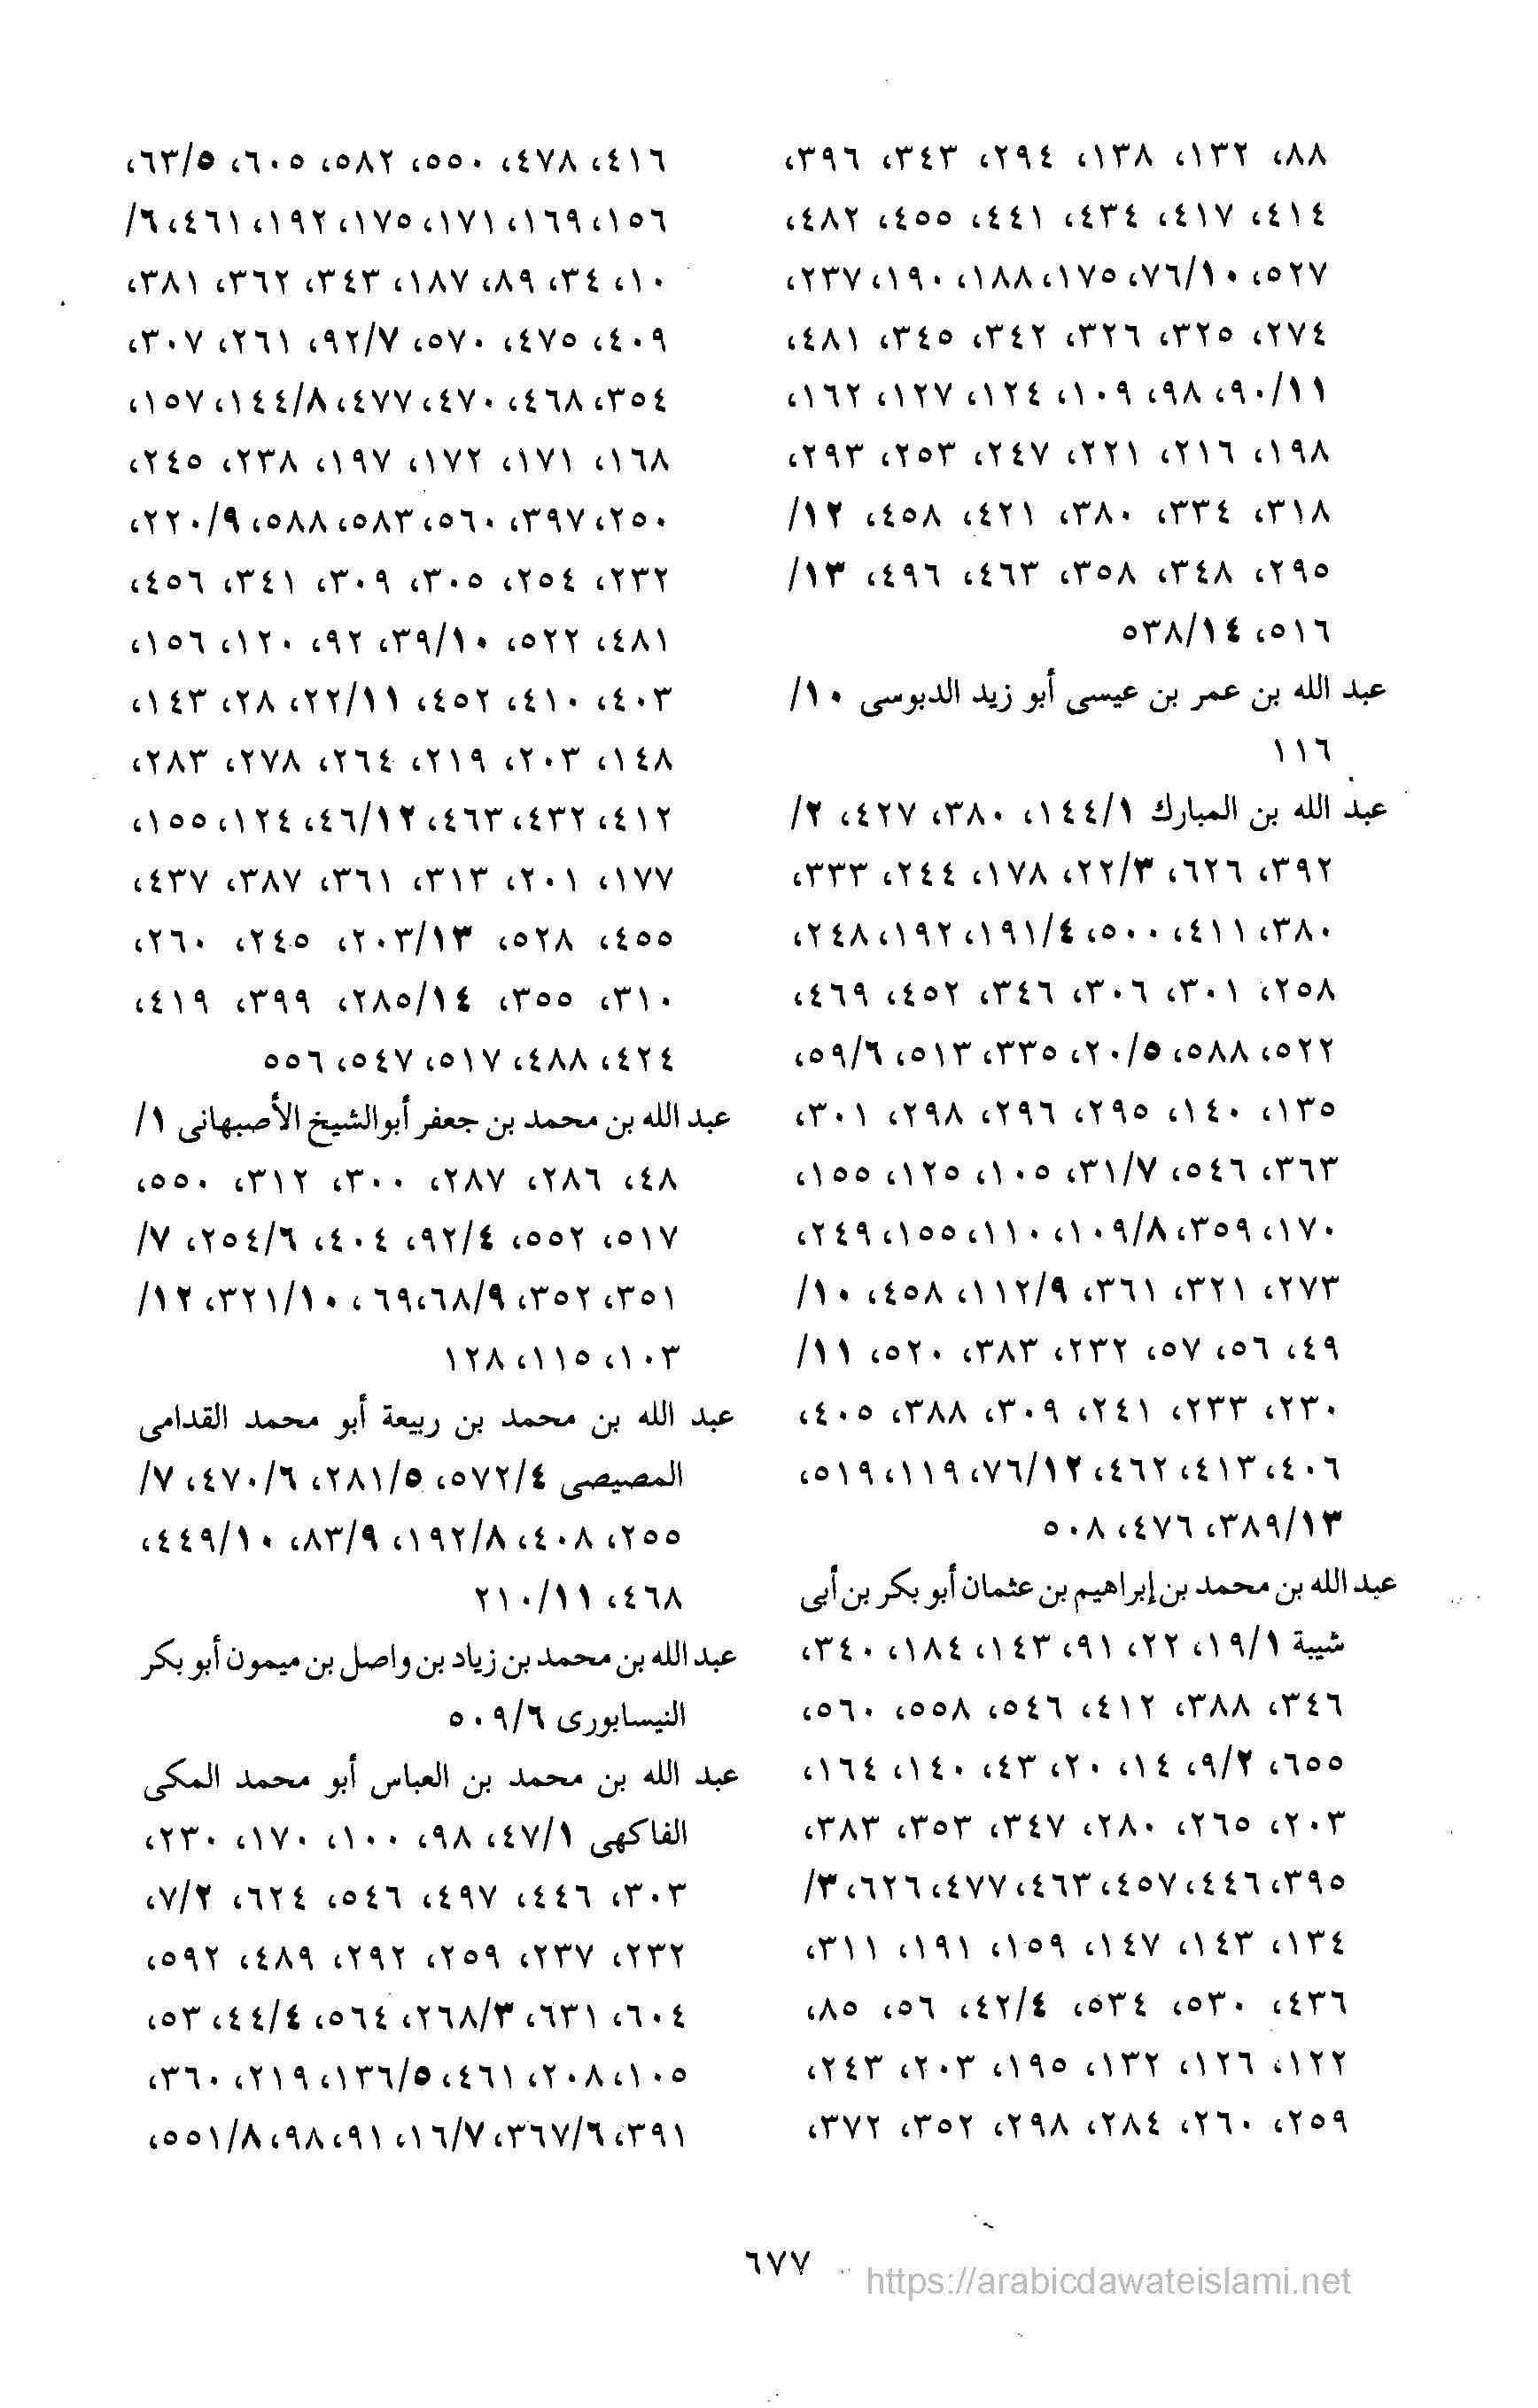 ٨٨، ١٣٢، ١٣٨، ٢٩٤، ٣٤٣، ٣٩٦،
٤١٤، ٤١٧، ٤٣٤، ٤٤١، ٤٥٥، ٤٨٢،
٥٢٧، ٧٦/١٠، ١٧٥، ١٨٨، ١٩٠، ٢٣٧،
٢٧٤، ٣٢٥، ٣٢٦، ٣٤٢، ٣٤٥، ٤٨١،
٩٠/١١، ٩٨، ١٠٩، ١٢٤، ١٢٧، ١٦٢،
١٩٨، ٢١٦، ٢٢١، ٢٤٧، ٢٥٣، ٢٩٣،
٣١٨، ٣٣٤، ٣٨٠، ٤٢١، ٤٥٨، ١٢/
٢٩٥، ٣٤٨، ٣٥٨، ٤٦٣، ٤٩٦، ١٣/
٥١٦، ٥٣٨/١٤
عبد الله بن عمر بن عيسى أبو زيد الدبوسى ١٠/
١١٦
عبد الله بن المبارك ١٤٤/١، ٣٨٠، ٤٢٧، ٢/
٣٩٢، ٦٢٦، ٢٢/٣، ١٧٨، ٢٤٤، ٣٣٣،
٣٨٠، ٤١١، ٥٠٠، ١٩١/٤، ١٩٢، ٢٤٨،
٢٥٨، ٣٠١، ٣٠٦، ٣٤٦، ٤٥٢، ٤٦٩،
٥٢٢، ٥٨٨، ٢٠/٥، ٣٣٥، ٥١٣، ٥٩/٦،
١٣٥، ١٤٠، ٢٩٥، ٢٩٦، ٢٩٨، ٣٠١،
٣٦٣، ٥٤٦، ٣١/٧، ١٠٥، ١٢٥، ١٥٥،
١٧٠، ٣٥٩، ١٠٩/٨، ١١٠، ١٥٥، ٢٤٩،
٢٧٣، ٣٢١، ٣٦١، ١١٢/٩، ٤٥٨، ١٠/
٤٩، ٥٦، ٥٧، ٢٣٢، ٣٨٣، ٥٢٠، ١١/
٢٣٠، ٢٣٣، ٢٤١، ٣٠٩، ٣٨٨، ٤٠٥،
٤٠٦، ٤١٣، ٤٦٢، ٧٦/١٢، ١١٩، ٥١٩،
٣٨٩/١٣، ٤٧٦، ٥٠٨
عبد الله بن محمد بن إبراهيم بن عثمان أبو بكر بن أبى
شيبة ١٩/١، ٢٢، ٩١، ١٤٣، ١٨٤، ٣٤٠،
٣٤٦، ٣٨٨، ٤١٢، ٥٤٦، ٥٥٨، ٥٦٠،
٦٥٥، ٩/٢، ١٤، ٢٠، ٤٣، ١٤٠، ١٦٤،
٢٠٣، ٢٦٥، ٢٨٠، ٣٤٧، ٣٥٣، ٣٨٣،
٣٩٥، ٤٤٦، ٤٥٧، ٤٦٣، ٤٧٧، ٦٢٦، ٣/
١٣٤، ١٤٣، ١٤٧، ١٥٩، ١٩١، ٣١١،
٤٣٦، ٥٣٠، ٥٣٤، ٤٢/٤، ٥٦، ٨٥،
١٢٢، ١٢٦، ١٣٢، ١٩٥، ٢٠٣، ٢٤٣،
٢٥٩، ٢٦٠، ٢٨٤، ٢٩٨، ٣٥٢، ٣٧٢،
٤١٦، ٤٧٨، ٥٥٠، ٥٨٢، ٦٠٥، ٦٣/٥،
١٥٦، ١٦٩، ١٧١، ١٧٥، ١٩٢، ٤٦١، ٦/
١٠، ٣٤، ٨٩، ١٨٧، ٣٤٣، ٣٦٢، ٣٨١،
٤٠٩، ٤٧٥، ٥٧٠، ٩٢/٧، ٢٦١، ٣٠٧،
٣٥٤، ٤٦٨، ٤٧٠، ٤٧٧، ١٤٤/٨، ١٥٧،
١٦٨، ١٧١، ١٧٢، ١٩٧، ٢٣٨، ٢٤٥،
٢٥٠، ٣٩٧، ٥٦٠، ٥٨٣، ٥٨٨، ٢٢٠/٩،
٢٣٢، ٢٥٤، ٣٠٥، ٣٠٩، ٣٤١، ٤٥٦،
٤٨١، ٥٢٢، ٣٩/١٠، ٩٢، ١٢٠، ١٥٦،
٤٠٣، ٤١٠، ٤٥٢، ٢٢/١١، ٢٨، ١٤٣،
١٤٨، ٢٠٣، ٢١٩، ٢٦٤، ٢٧٨، ٢٨٣،
٤١٢، ٤٣٢، ٤٦٣، ٤٦/١٢، ١٢٤، ١٥٥،
١٧٧، ٢٠١، ٣١٣، ٣٦١، ٣٨٧، ٤٣٧،
٤٥٥، ٥٢٨، ٢٠٣/١٣، ٢٤٥، ٢٦٠،
٣١٠، ٣٥٥، ٢٨٥/١٤، ٣٩٩، ٤١٩،
٤٢٤، ٤٨٨، ٥١٧، ٥٤٧، ٥٥٦
عبد الله بن محمد بن جعفر أبوالشيخ الأصبهانى ١/
٤٨، ٢٨٦، ٢٨٧، ٣٠٠، ٣١٢، ٥٥٠،
٥١٧، ٥٥٢، ٩٢/٤، ٤٠٤، ٢٥٤/٦، ٧/
٣٥١، ٣٥٢، ٦٨/٩، ٦٩، ٣٢١/١٠، ١٢/
١٠٣، ١١٥، ١٢٨
عبد الله بن محمد بن ربيعة أبو محمد القدامى
المصيصى ٥٧٢/٤، ٢٨١/٥، ٤٧٠/٦، ٧/
٢٥٥، ٤٠٨، ١٩٢/٨، ٨٣/٩، ٤٤٩/١٠،
٤٦٨، ٢١٠/١١
عبد الله بن محمد بن زياد بن واصل بن ميمون أبو بكر
النيسابورى ٥٠٩/٦
عبد الله بن محمد بن العباس أبو محمد المكى
الفاكهى ٤٧/١، ٩٨، ١٠٠، ١٧٠، ٢٣٠،
٣٠٣، ٤٤٦، ٤٩٧، ٥٤٦، ٦٢٤، ٧/٢،
٢٣٢، ٢٣٧، ٢٥٩، ٢٩٢، ٤٨٩، ٥٩٢،
٦٠٤، ٦٣١، ٢٦٨/٣، ٥٦٤، ٤٤/٤، ٥٣،
١٠٥، ٢٠٨، ٤٦١، ١٣٦/٥، ٢١٩، ٣٦٠،
٣٩١، ٣٦٧/٦، ١٦/٧، ٩١، ٩٨، ٥٥١/٨،
٦٧٧
https://arabicdawateislami.net